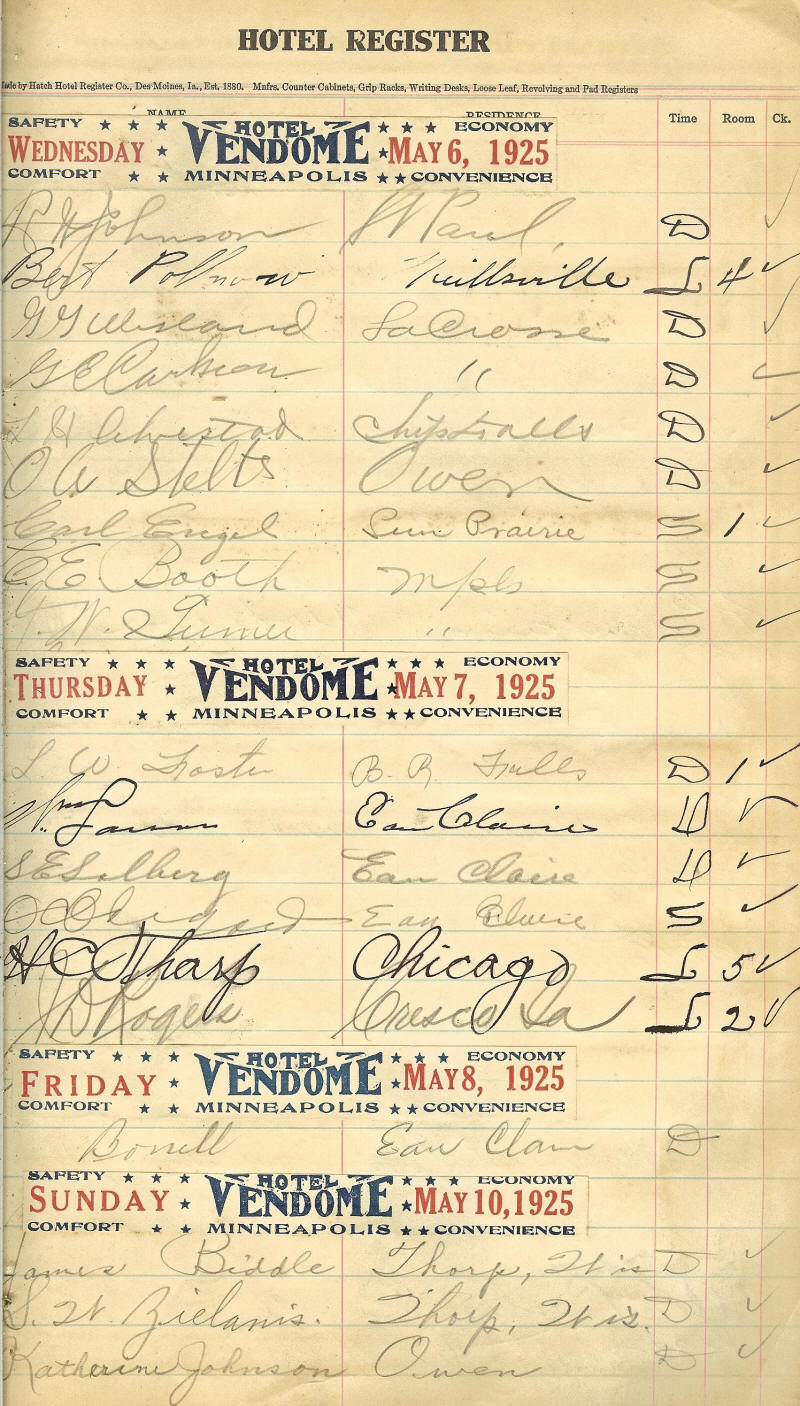 HOTEL REGISTER
Made by Hatch Hotel Register Co., Des Moines, Ia., Est. 1880. Mnfrs. Counter Cabinets, Grip Racks, Writing Desks, Loose Leaf, Revolving and Pad Registers
NAME RESIDENCE Time Room Ck.
SAFETY HOTEL ECONOMY
WEDNESDAY VENDOME MAY 6, 1925
COMFORT MINNEAPOLIS CONVENIENCE
Johnson St Paul, D ✓
Bert Polnow Neillsville L 4 ✓
LaCrosse D ✓
G E Carlson " D ✓
H Chip Falls D ✓
O A Stelts Owen D ✓
Carl Engel Sun Prairie S 1 ✓
C. E. Booth Mpls S ✓
W. " S ✓
SAFETY HOTEL ECONOMY
THURSDAY VENDOME MAY 7, 1925
COMFORT MINNEAPOLIS CONVENIENCE
L. W. Foster B. R. Falls D 1 ✓
Wm. Larson Eau Claire D ✓
S E Solberg Eau Claire D ✓
Eau Claire S ✓
H C Tharp Chicago L 5 ✓
J D Rogers Cresco Ia L 2 ✓
SAFETY HOTEL ECONOMY
FRIDAY VENDOME MAY 8, 1925
COMFORT MINNEAPOLIS CONVENIENCE
Eau Claire D
SAFETY HOTEL ECONOMY
SUNDAY VENDOME MAY 10, 1925
COMFORT MINNEAPOLIS CONVENIENCE
James Biddle Thorp, Wis D ✓
S. W. Zielanis. Thorp, Wis. D ✓
Katherine Johnson Owen D ✓